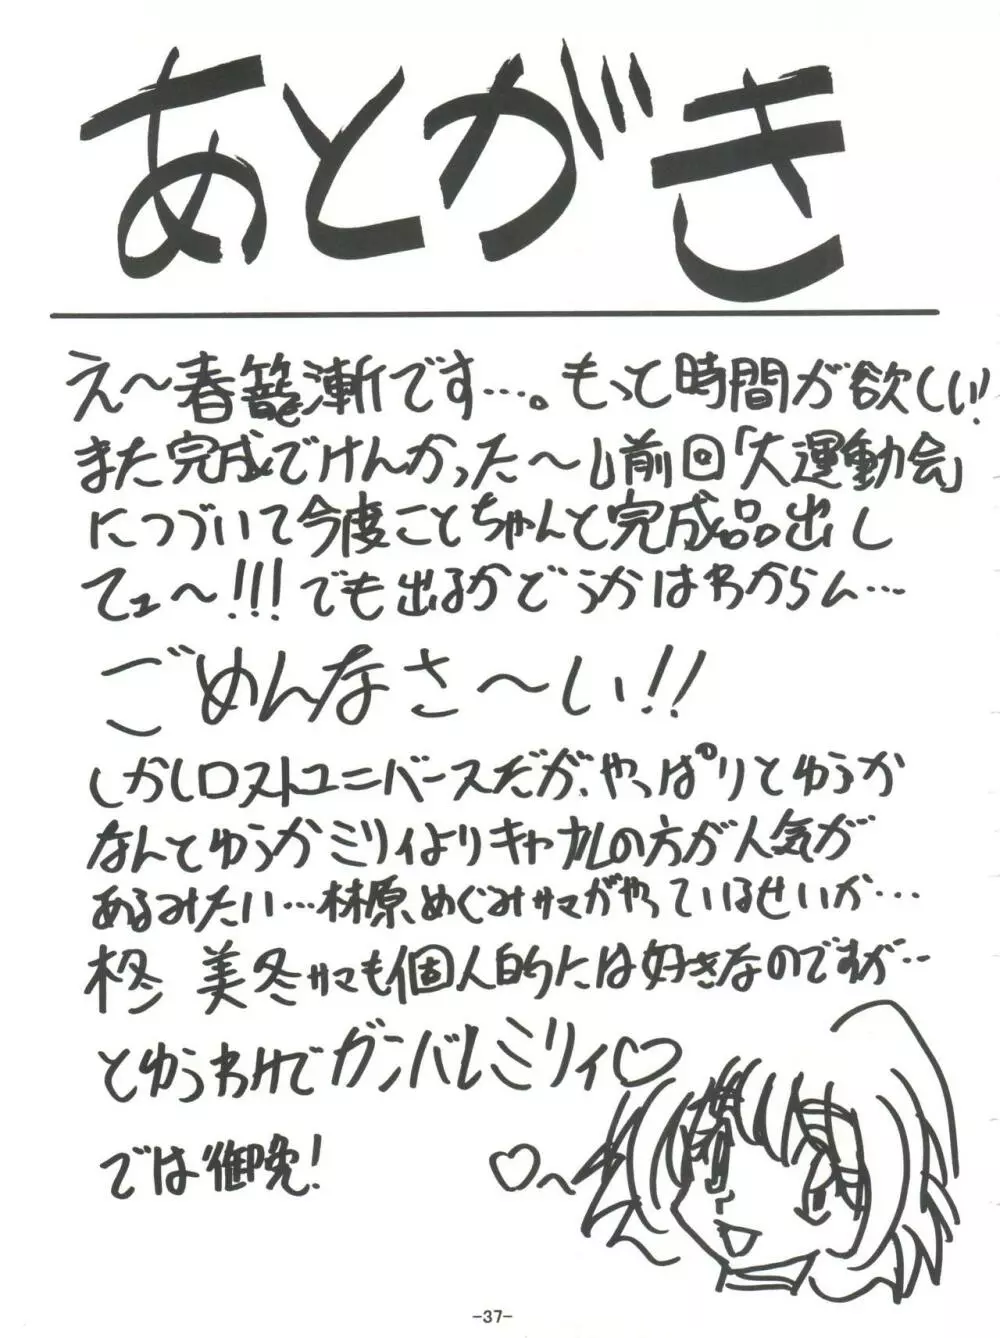 あとがき
え〜春籠漸です…。もって時間が欲しい!
また完成でけんかった〜し前回「大運動会」
につづいて今度こそちゃんと完成品出し
てェ〜!!!でも出るかどうかはわからん…
ごめんなさ〜い!!
しかしロストユニバースだが、やっぱりとゆうか
なんとゆうかミリィよりキャナルの方が人気が
あるみたい…林原めぐみサマがやっているせいか…
柊 美冬サマも個人的には好きなのですが…
とゆうわけでガンバレミリィ♡
では御免!
♡〜
-37-